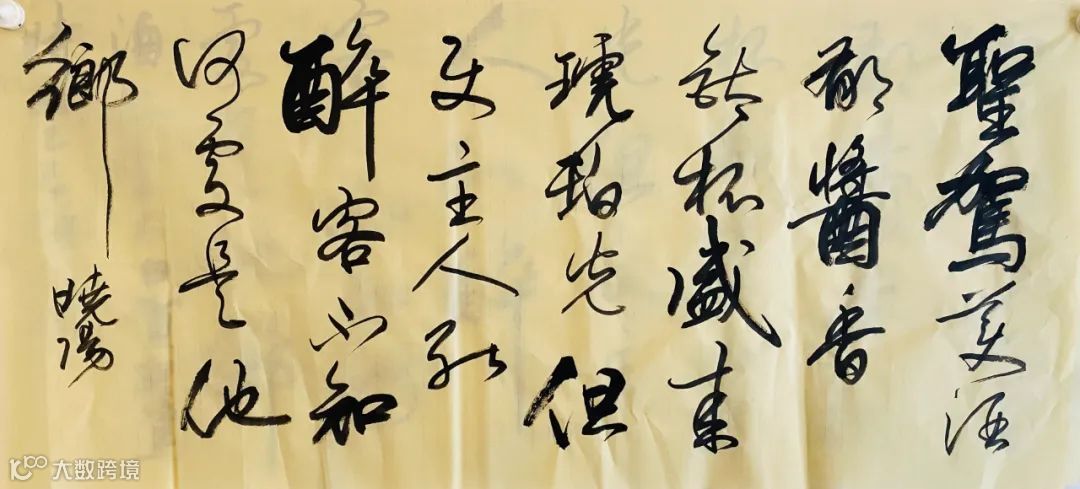 聖駕美酒
郁醬香
杯盛来
琥珀光但
使主人能
醉客不知
何處是他
鄉
曉陽
大数跨境